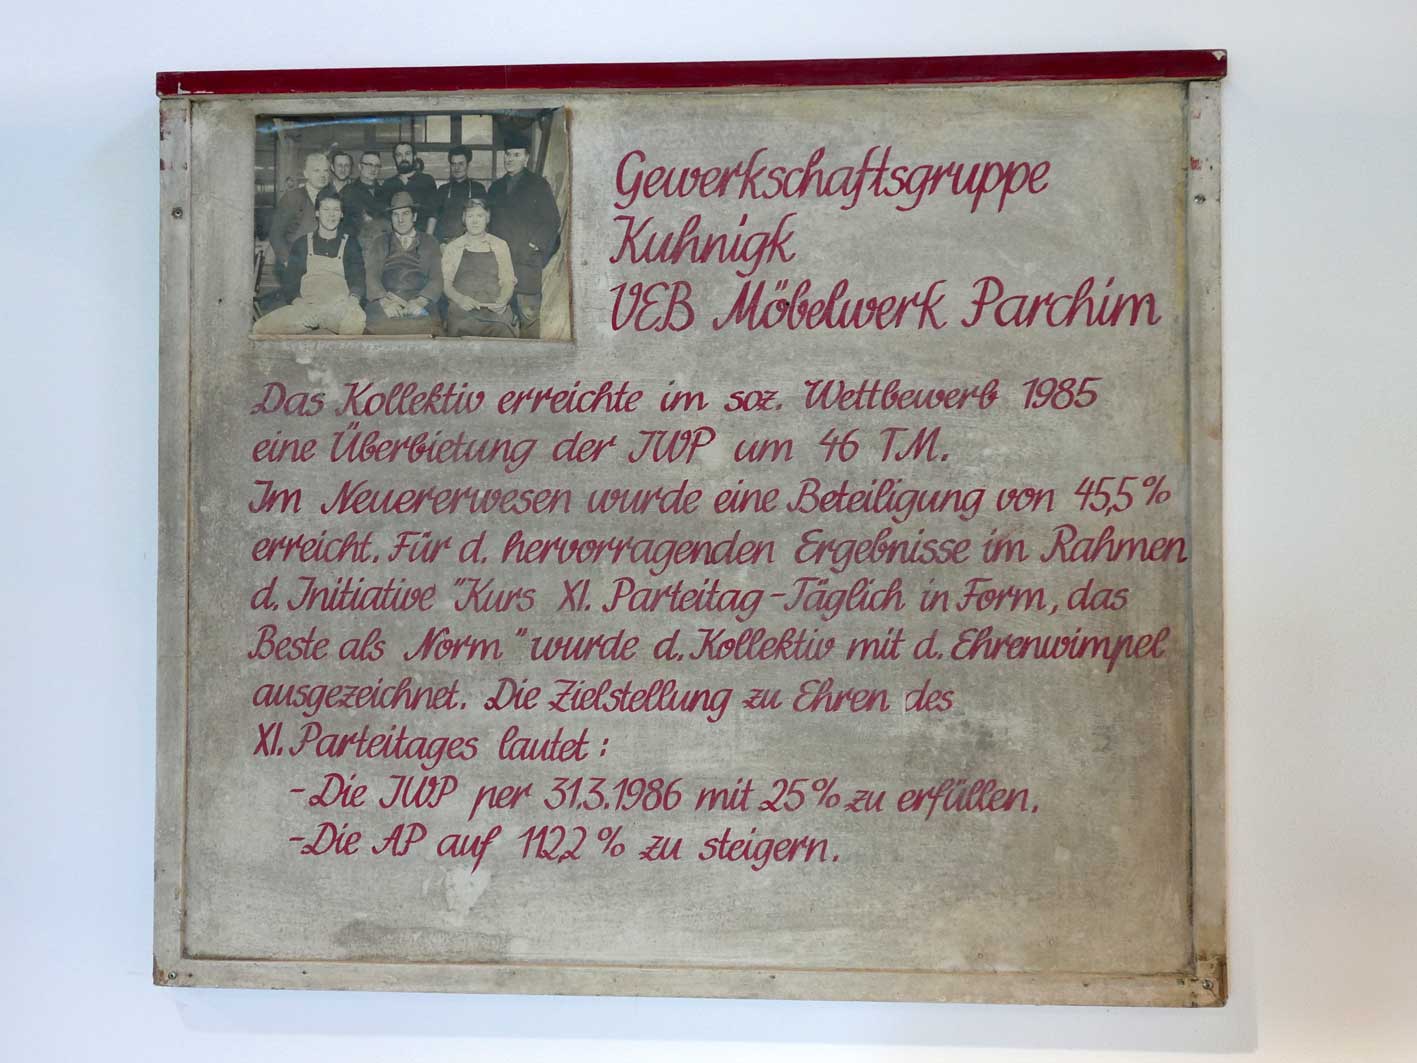 Gewerkschaftsgruppe
Kuhnigk
VEB Möbelwerk Parchim
Das Kollektiv erreichte im soz. Wettbewerb 1985
eine Überbietung der IWP um 46 TM.
Im Neuererwesen wurde eine Beteiligung von 45,5 %
erreicht. Für d. hervorragenden Ergebnisse im Rahmen
d. Initiative "Kurs XI. Parteitag - Täglich in Form, das
Beste als Norm" wurde d. Kollektiv mit d. Ehrenwimpel
ausgezeichnet. Die Zielstellung zu Ehren des
XI. Parteitages lautet:
- Die IWP per 31.3.1986 mit 25 % zu erfüllen.
- Die AP auf 112,2 % zu steigern.